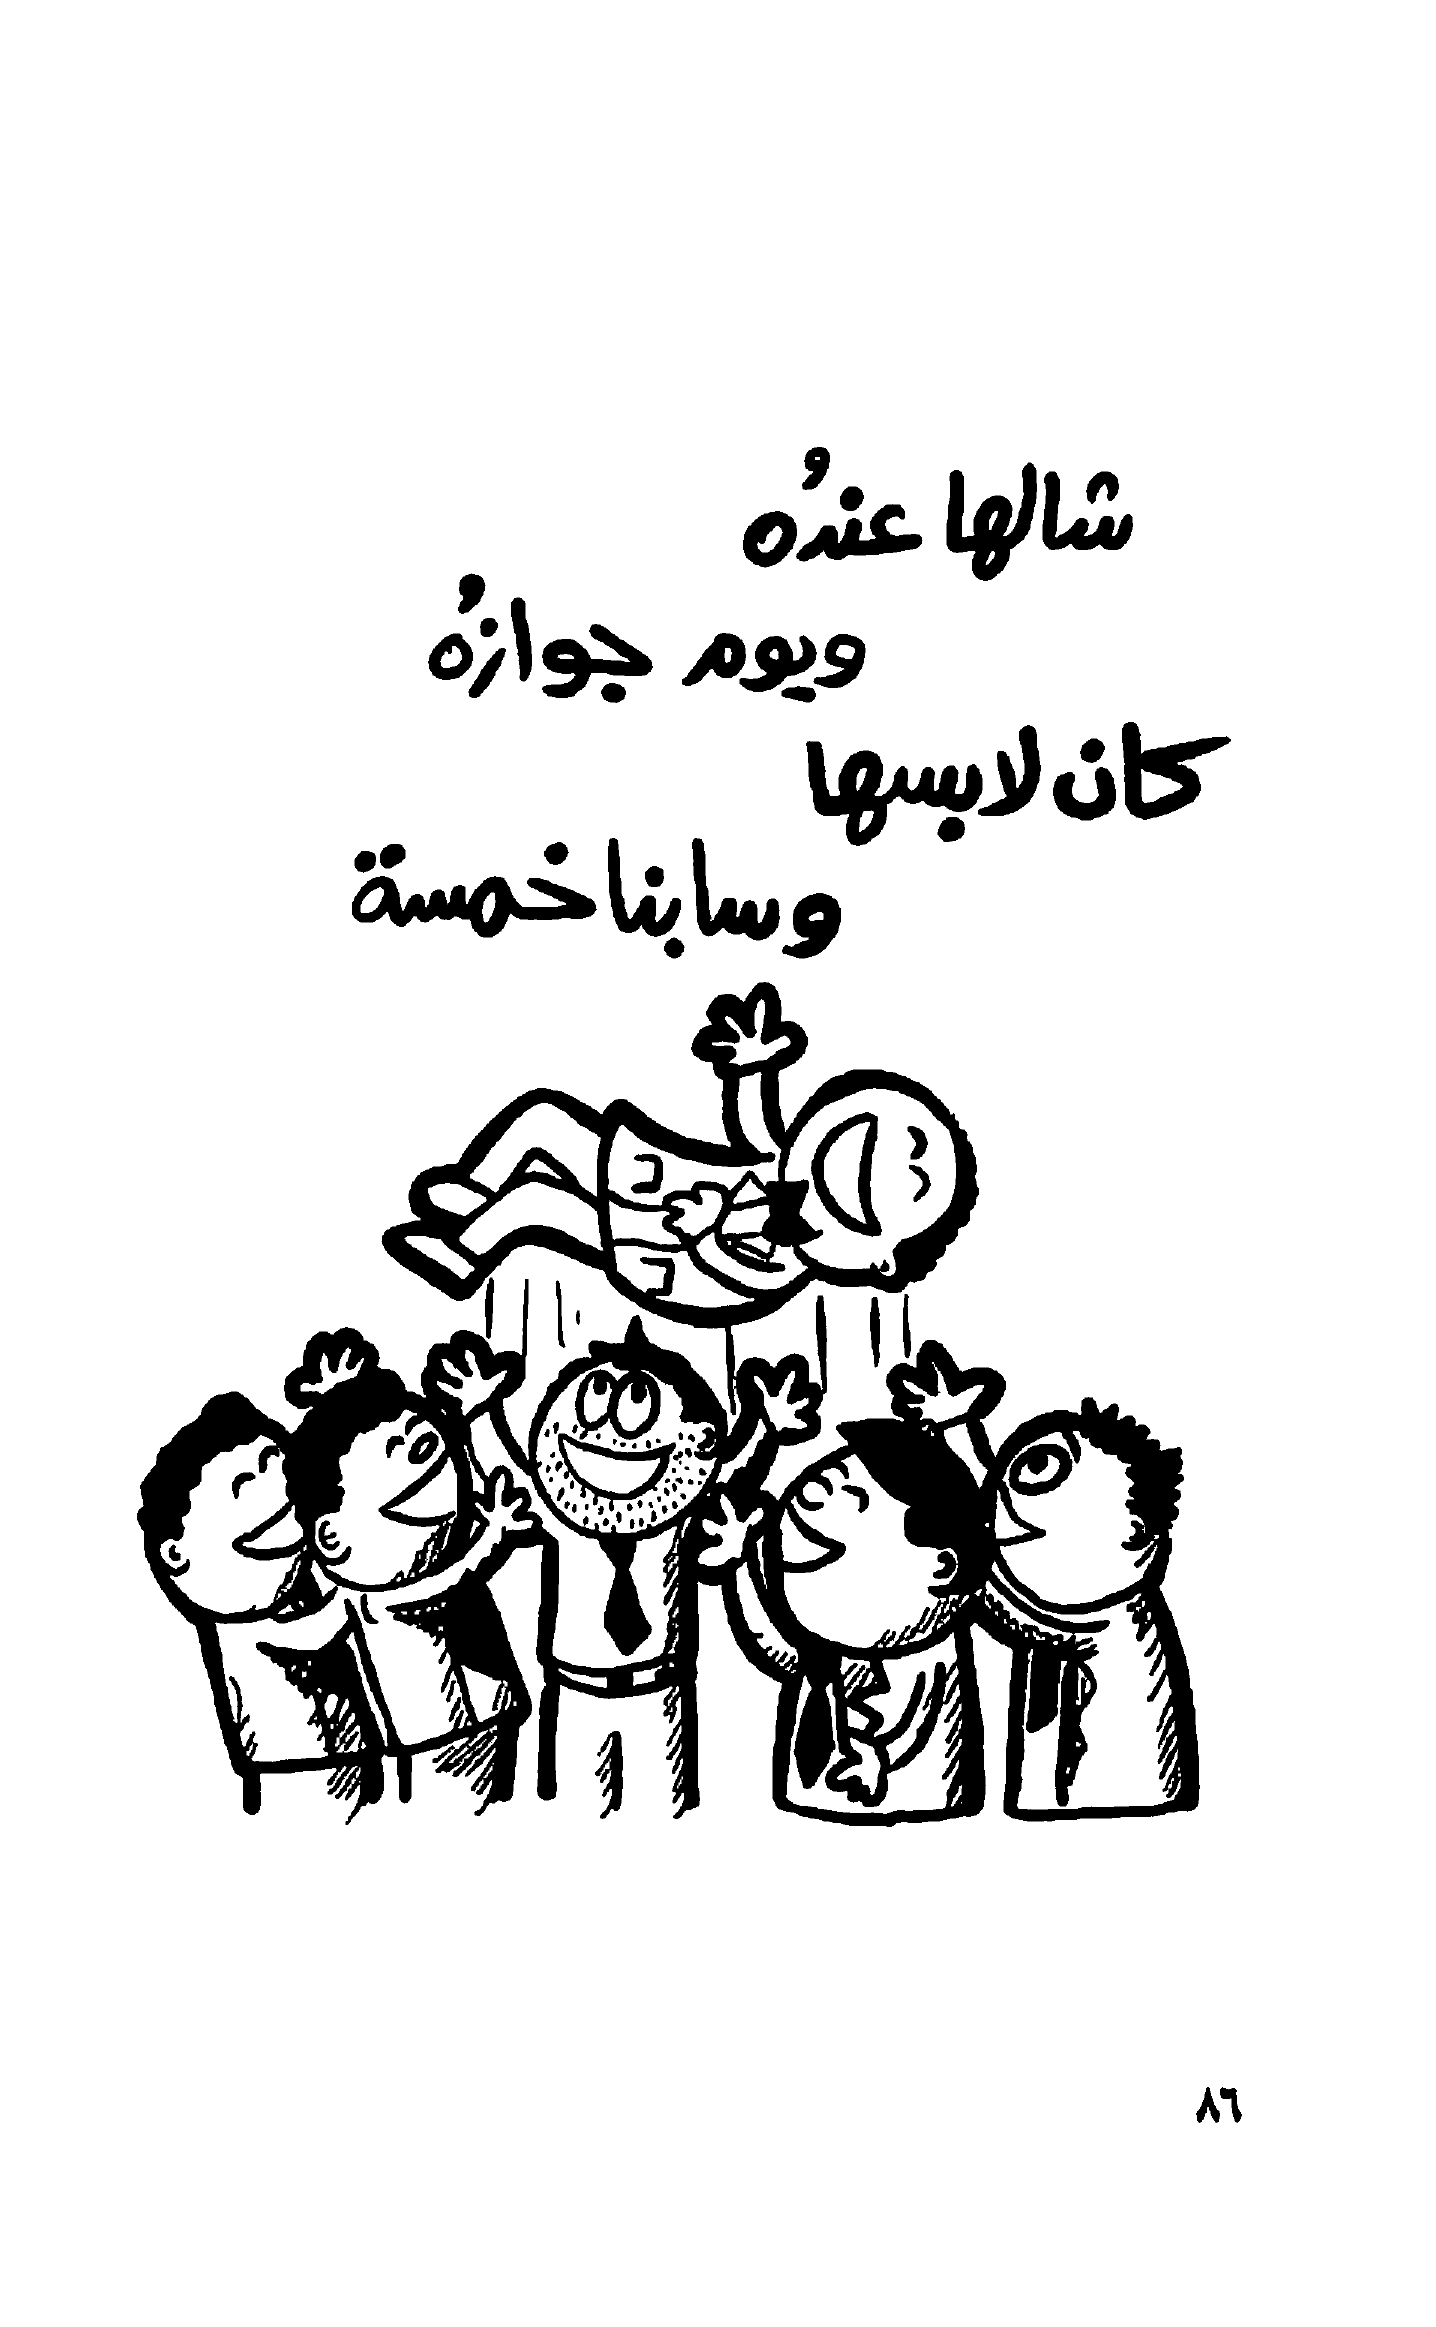 شالها عندُه
ويوم جوازُه
كان لابسها
وسابنا خمسة
٨٦